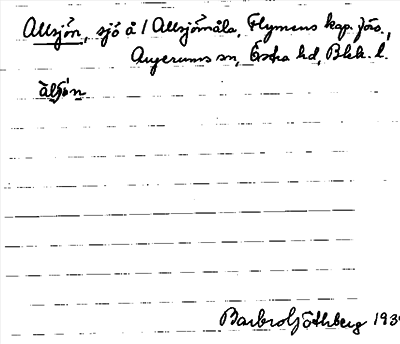 Allsjön, sjö å 1 Allsjömåla, Flymens kap. förs.,
Augerums sn, Östra hd, Blek. l.
àlʃön
Barbro Göthberg 193